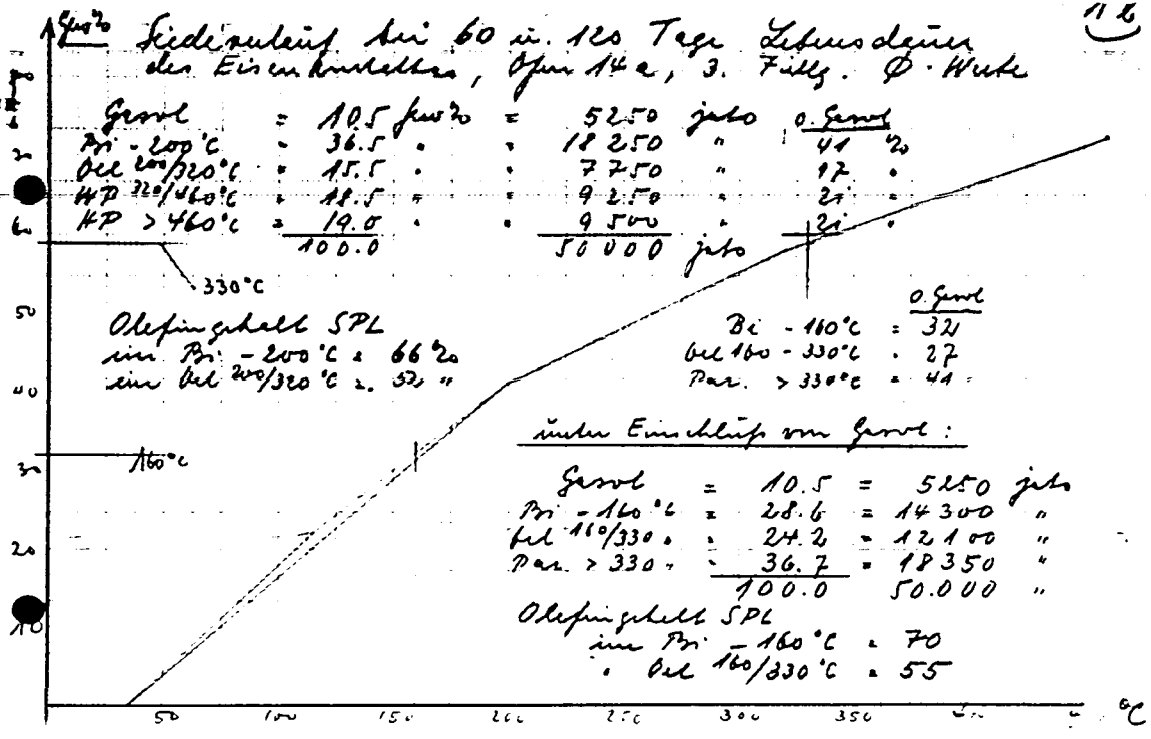 11 b
Gew% Siedeverlauf bei 60 u. 120 Tage Lebensdauer
des Eisenkontaktes, Ofen 14a, 3. Füllg. Ø-Werte
Gasol = 10.5 Gew% = 5250 jato o. Gasol
Bi - 200°C = 36.5 " = 18 250 " 41 %
Oel 200/320°C = 15.5 " = 7 750 " 17 "
HP 320/460°C = 18.5 " = 9 250 " 21 "
HP > 460°C = 19.0 " = 9 500 " 21 "
100.0 50 000 jato
330°C
Olefingehalt SPL
im Bi - 200°C = 66 %
im Oel 200/320°C = 52 "
o. Gasol
Bi - 160°C = 32
Oel 160 - 330°C = 27
Par. > 330°C = 41
160°C
unter Einschluß von Gasol:
Gasol = 10.5 = 5250 jato
Bi - 160°C = 28.6 = 14 300 "
Oel 160/330 " = 24.2 = 12 100 "
Par. > 330 " = 36.7 = 18 350 "
100.0 50.000 "
Olefingehalt SPL
im Bi - 160°C = 70
" Oel 160/330°C = 55
60
50
40
30
20
10
50 100 150 200 250 300 350 °C